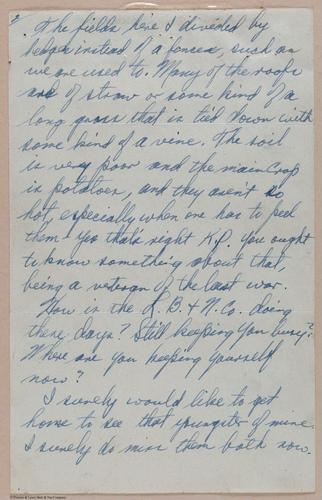 The fields here is divided by
hedges instead of a fences, such as
we are used to. Many of the roofs
are of straw or some kind of a
long grass that is tied down with
some kind of a vine. The soil
is very poor and the main Crop
is potatoes, and they aren't so
hot, especially when one has to peel
them - yes that's right K.P. you ought
to know something about that,
being a veteran of the last war.
How is the R. B. & N. Co. doing
these days? Still keeping you busy?
Where are you keeping yourself
now?
I surely would like to get
home to see that youngster of mine.
I surely do miss them both now.